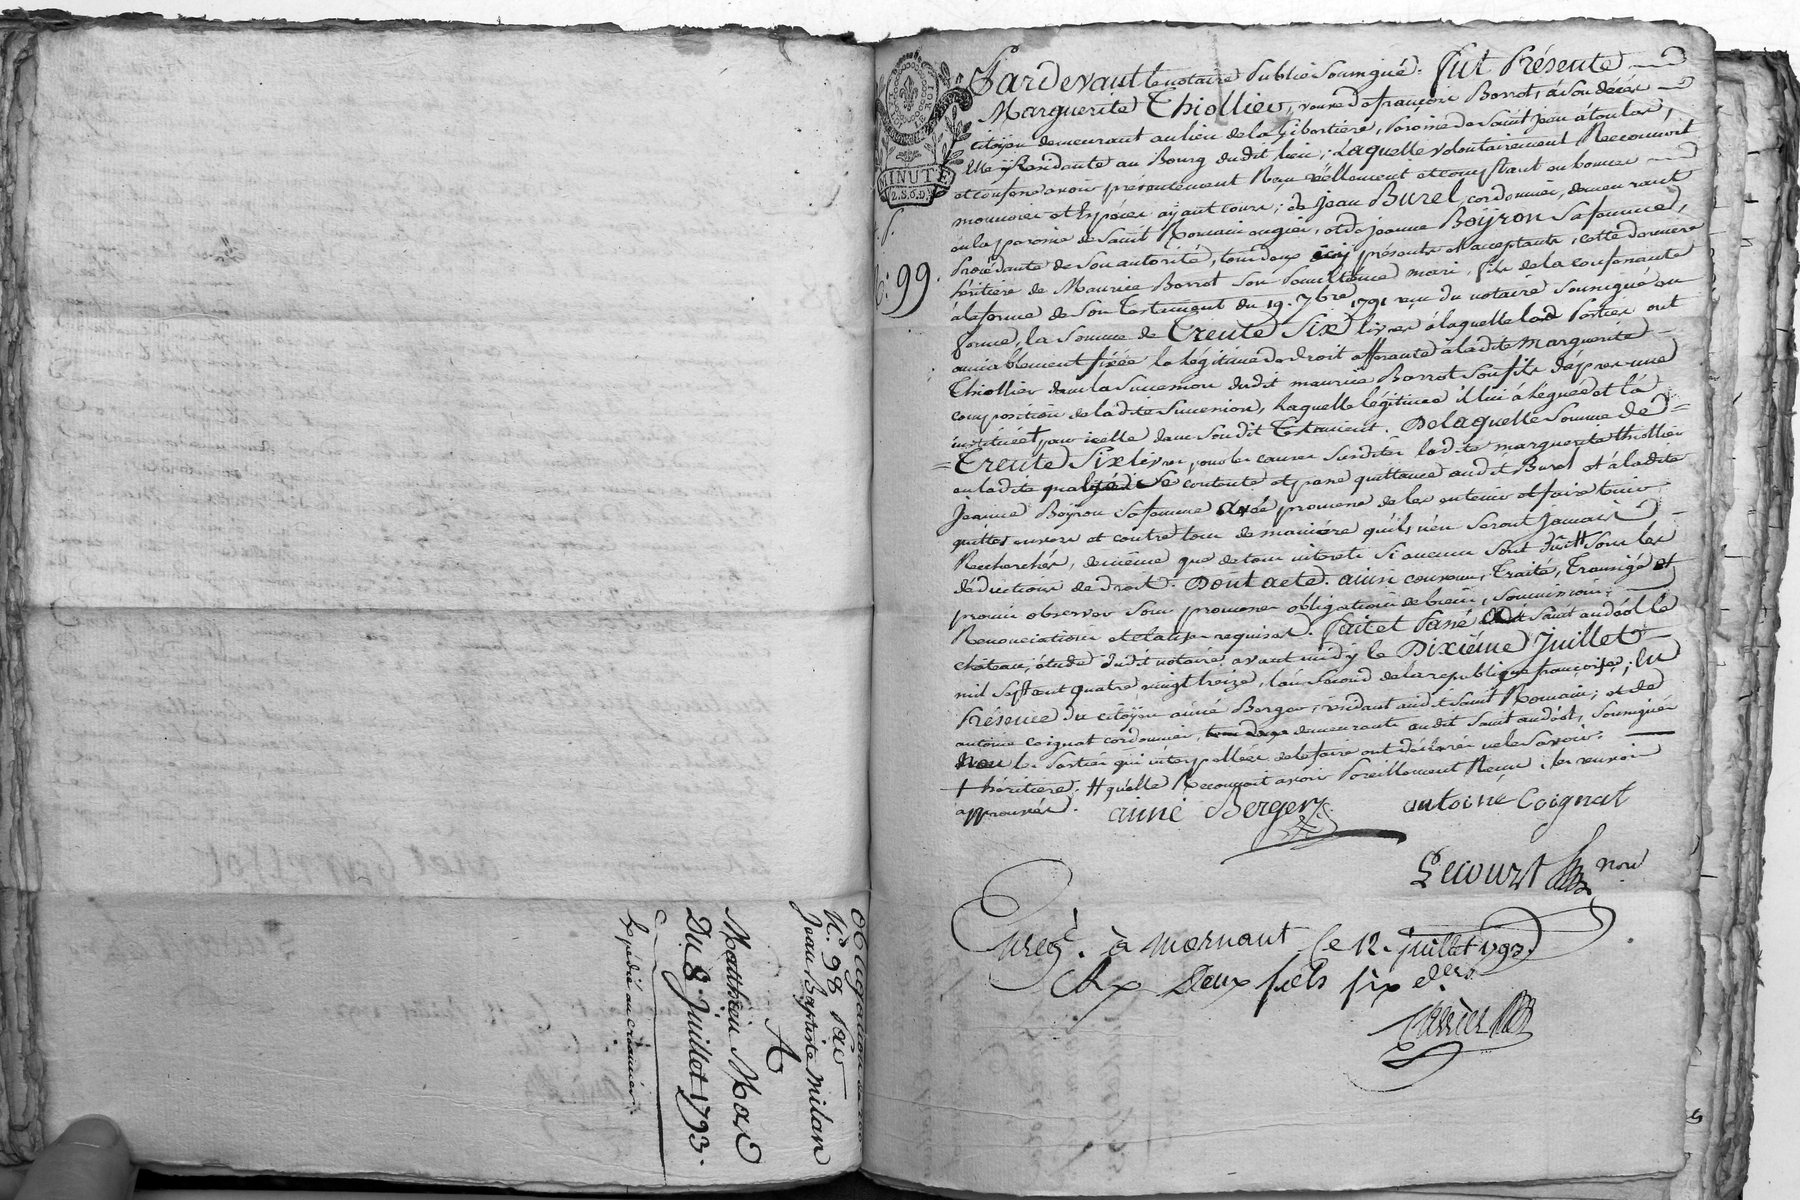 obligation de
N.° 98 par
Jean Baptiste Milan
A
Matthieu
Du 8 Juillet 1793.
Expédié au créancier
MINUTE
2.S.6.D.
99
Pardevant le notaire Public soussigné. Fut Présente
Marguerite Thiollier, veuve de françois Borrot, à son décès
citoyen demeurant au lieu de la Gibertiere, Paroisse de Saint jean à toulas,
Elle y Residante au Bourg dudit lieu; Laquelle volontairement Reconnoit
et confesse avoir présentement Reçu réellement et comptant en bonnes
monnoies et Espèces ayant cours; de Jean Burel, cordonnier, demeurant
en la paroisse de Saint Romain en gier, et de jeanne Boÿron sa femme,
Procédante de son autorité, tous deux icy présents et acceptants, cette derniere
héritiere de Maurice Borrot son pénultième mari, fils de la confessante
à la forme de son testament du 19. 7bre 1791 reçu du notaire soussigné en
forme, la somme de Trente Six livres à laquelle les Parties ont
amiablement fixée la légitime de droit afferante à la dite Marguerite
Thiollier dans la succession dudit maurice Borrot son fils d'après une
composition de la dite succession, laquelle légitime il lui à léguée et l'à
instituée + pour icelle dans son dit Testament. De laquelle somme de
= Trente Six livres pour les causes susdites ladite marguerite thiollier
en la dite qualité se contente et passe quittance audit Burel et à la dite
Jeanne Boÿron sa femme avec promesse de les en tenir et faire tenir
quittes envers et contre tous de manière qu'ils n'en seront jamais
Recherchés, de même que de tous interets si aucuns sont dûs # sous les
déductions de droit. Dont acte. ainsi convenu, traité, transigé et
promis observer sous promesses obligations de biens, soumissions,
Renonciations et clauses requises. fait et Passé à Saint andéol le
château, étude dudit notaire avant midy le Dixième Juillet
mil sept cent quatre vingt treize, l'an second de la republique françoise; En
Présence du citoyen aimé Berger, résidant audit Saint Romain; et de
antoine coignat cordonnier, demeurant audit Saint andéol, soussignés
non les Parties qui interpellées de le faire ont déclarée ne le savoir.
+ héritiere. # qu'elle Reconnoit avoir Pareillement Reçu, les renvois
approuvés. aimé Berger antoine Coignat
Lecourt nore
Enreg.é à mornant le 12. juillet 1793
Rx Deux sols six d.ers